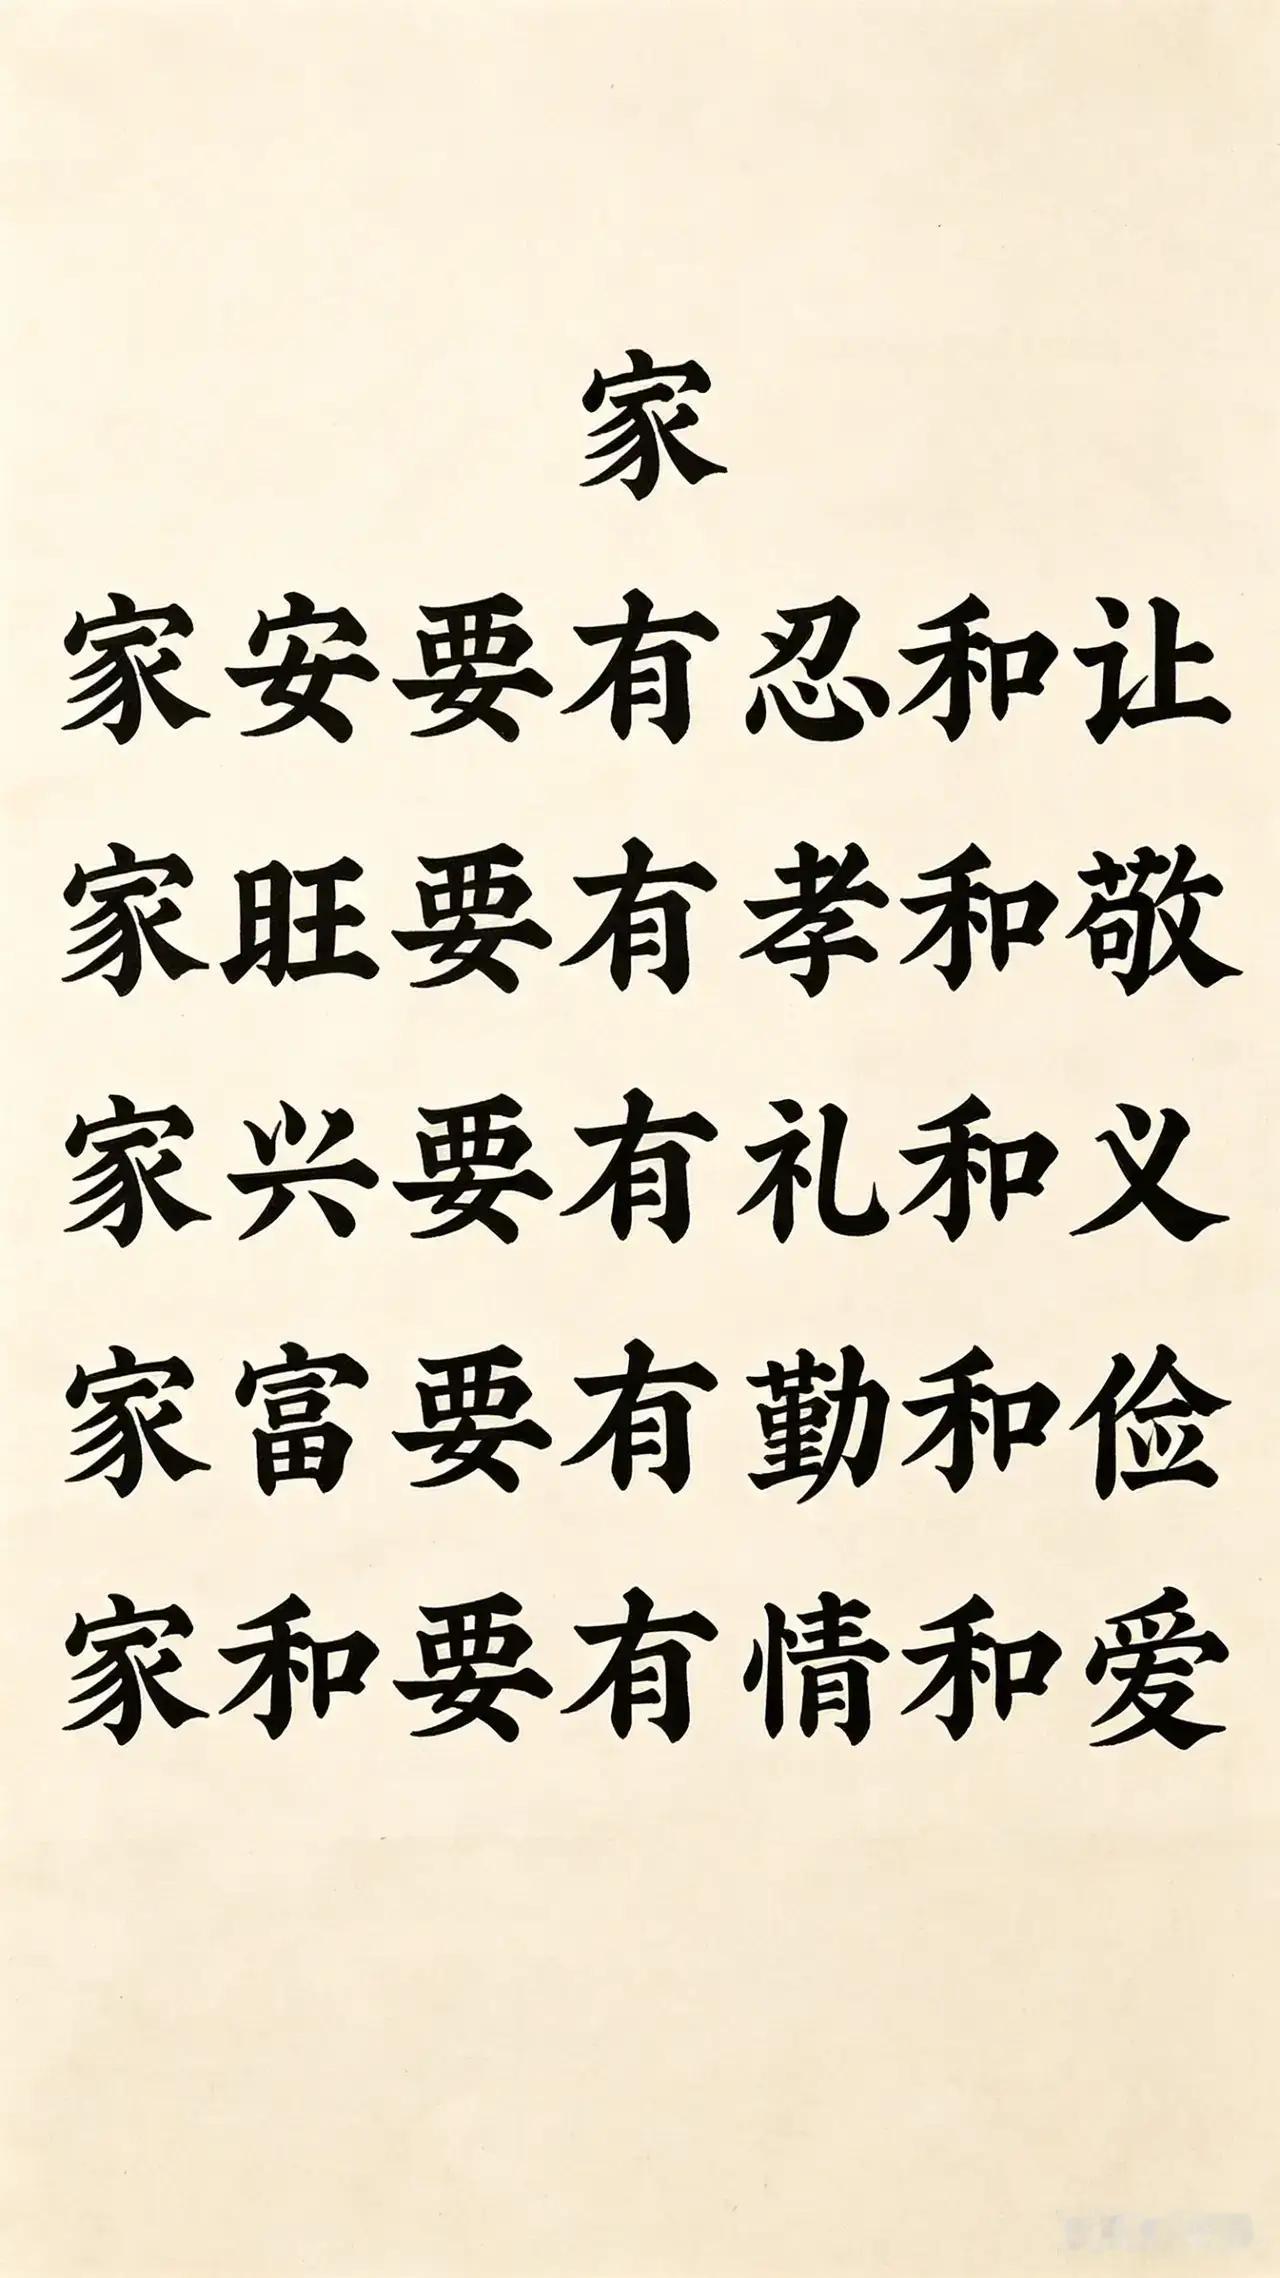 家
家安要有忍和让
家旺要有孝和敬
家兴要有礼和义
家富要有勤和俭
家和要有情和爱